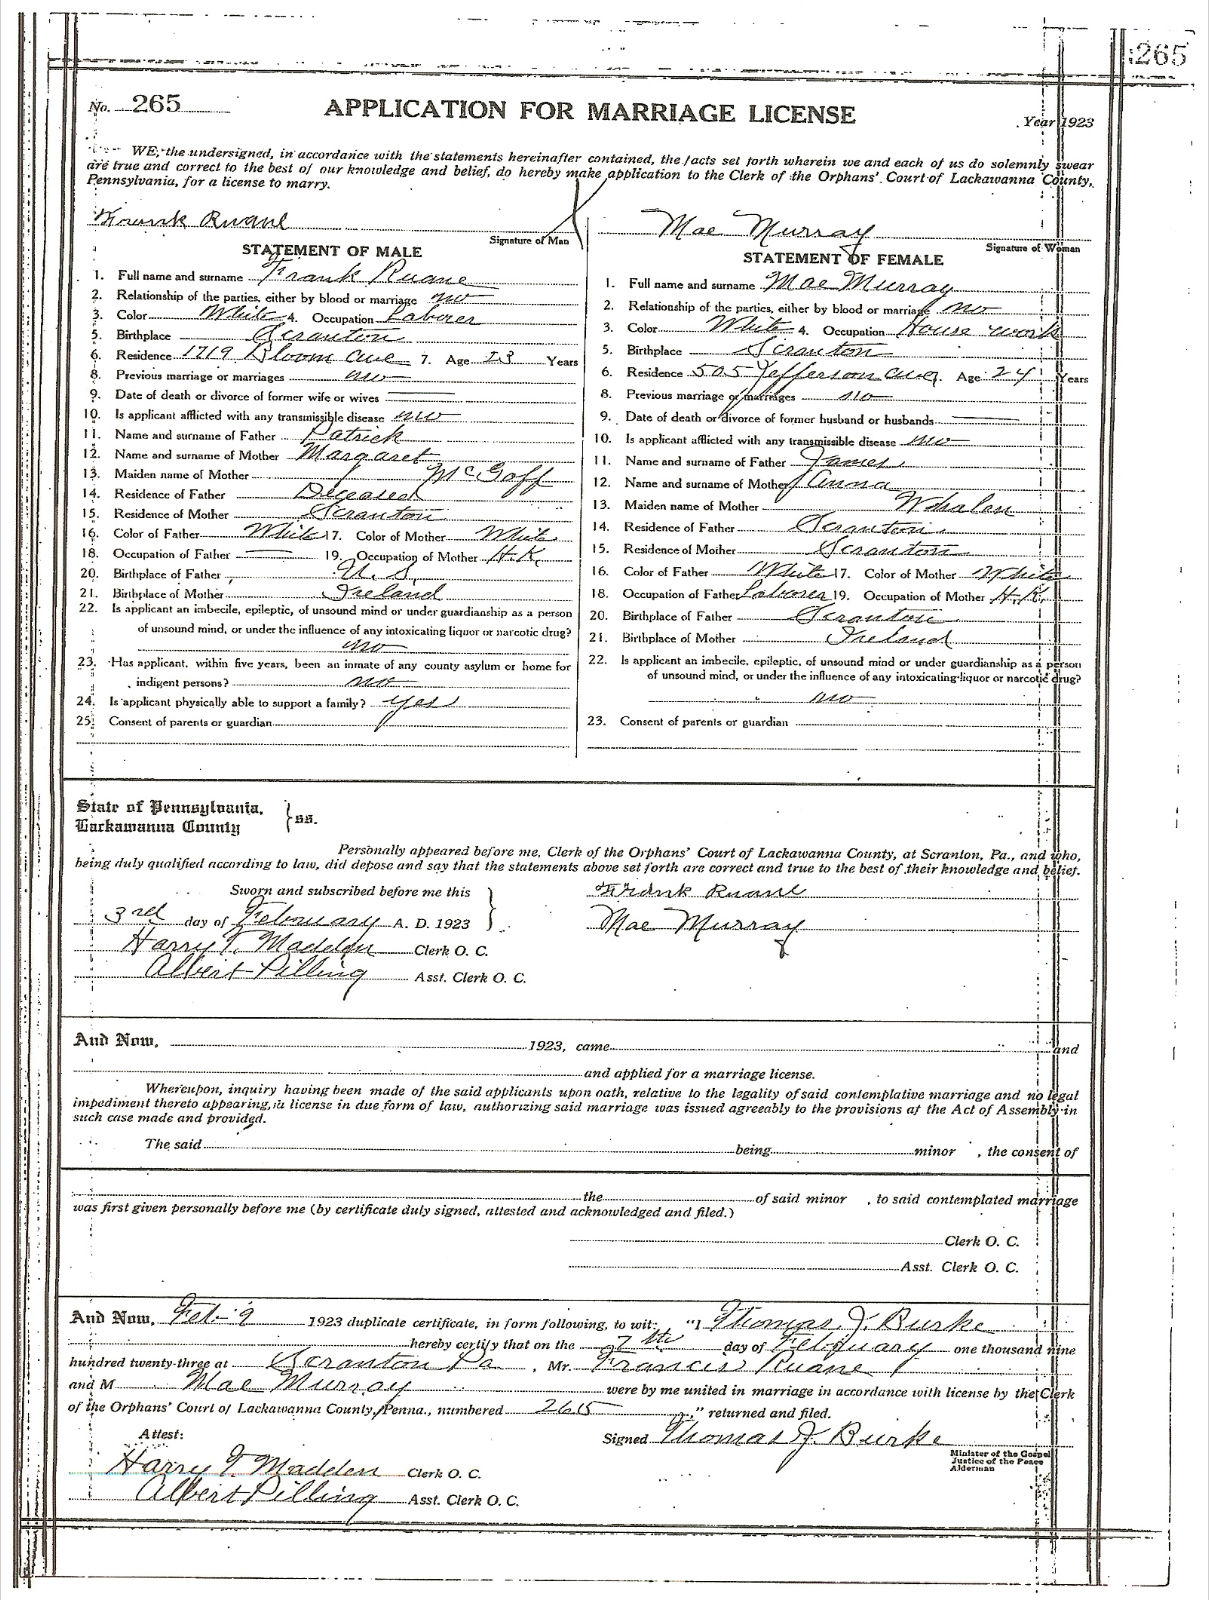 265
No. 265 APPLICATION FOR MARRIAGE LICENSE Year 1923
WE, the undersigned, in accordance with the statements hereinafter contained, the facts set forth wherein we and each of us do solemnly swear
are true and correct to the best of our knowledge and belief, do hereby make application to the Clerk of the Orphans' Court of Lackawanna County,
Pennsylvania, for a license to marry.
Frank Ruane
Signature of Man
STATEMENT OF MALE
1. Full name and surname Frank Ruane
2. Relationship of the parties, either by blood or marriage no
3. Color White 4. Occupation Laborer
5. Birthplace Scranton
6. Residence 1719 Bloom Ave 7. Age 23 Years
8. Previous marriage or marriages no
9. Date of death or divorce of former wife or wives
10. Is applicant afflicted with any transmissible disease no
11. Name and surname of Father Patrick
12. Name and surname of Mother Margaret
13. Maiden name of Mother McGoff
14. Residence of Father Deceased
15. Residence of Mother Scranton
16. Color of Father White 17. Color of Mother White
18. Occupation of Father 19. Occupation of Mother H.K.
20. Birthplace of Father U.S.
21. Birthplace of Mother Ireland
22. Is applicant an imbecile, epileptic, of unsound mind or under guardianship as a person
of unsound mind, or under the influence of any intoxicating liquor or narcotic drug?
no
23. Has applicant, within five years, been an inmate of any county asylum or home for
indigent persons? no
24. Is applicant physically able to support a family? yes
25. Consent of parents or guardian
Mae Murray
Signature of Woman
STATEMENT OF FEMALE
1. Full name and surname Mae Murray
2. Relationship of the parties, either by blood or marriage no
3. Color White 4. Occupation House work
5. Birthplace Scranton
6. Residence 505 Jefferson Ave 7. Age 24 Years
8. Previous marriage or marriages no
9. Date of death or divorce of former husband or husbands
10. Is applicant afflicted with any transmissible disease no
11. Name and surname of Father James
12. Name and surname of Mother Anna
13. Maiden name of Mother Whalen
14. Residence of Father Scranton
15. Residence of Mother Scranton
16. Color of Father White 17. Color of Mother White
18. Occupation of Father Laborer 19. Occupation of Mother H.K.
20. Birthplace of Father Scranton
21. Birthplace of Mother Ireland
22. Is applicant an imbecile, epileptic, of unsound mind or under guardianship as a person
of unsound mind, or under the influence of any intoxicating liquor or narcotic drug?
no
23. Consent of parents or guardian
State of Pennsylvania,
Lackawanna County } ss.
Personally appeared before me, Clerk of the Orphans' Court of Lackawanna County, at Scranton, Pa., and who,
being duly qualified according to law, did depose and say that the statements above set forth are correct and true to the best of their knowledge and belief.
Sworn and subscribed before me this Frank Ruane
3rd day of February A. D. 1923 Mae Murray
Harry T. Madden Clerk O. C.
Albert Pilling Asst. Clerk O. C.
And Now, 1923, came and
and applied for a marriage license.
Whereupon, inquiry having been made of the said applicants upon oath, relative to the legality of said contemplative marriage and no legal
impediment thereto appearing, a license in due form of law, authorizing said marriage was issued agreeably to the provisions of the Act of Assembly in
such case made and provided.
The said being minor , the consent of
the of said minor , to said contemplated marriage
was first given personally before me (by certificate duly signed, attested and acknowledged and filed.)
Clerk O. C.
Asst. Clerk O. C.
And Now, Feb - 9 1923 duplicate certificate, in form following, to wit: "I Thomas J. Burke
hereby certify that on the 7th day of February one thousand nine
hundred twenty-three at Scranton Pa , Mr. Francis Ruane
and M Mae Murray were by me united in marriage in accordance with license by the Clerk
of the Orphans' Court of Lackawanna County, Penna., numbered 265 ," returned and filed.
Attest: Signed Thomas J. Burke
Minister of the Gospel
Justice of the Peace
Alderman
Harry T. Madden Clerk O. C.
Albert Pilling Asst. Clerk O. C.